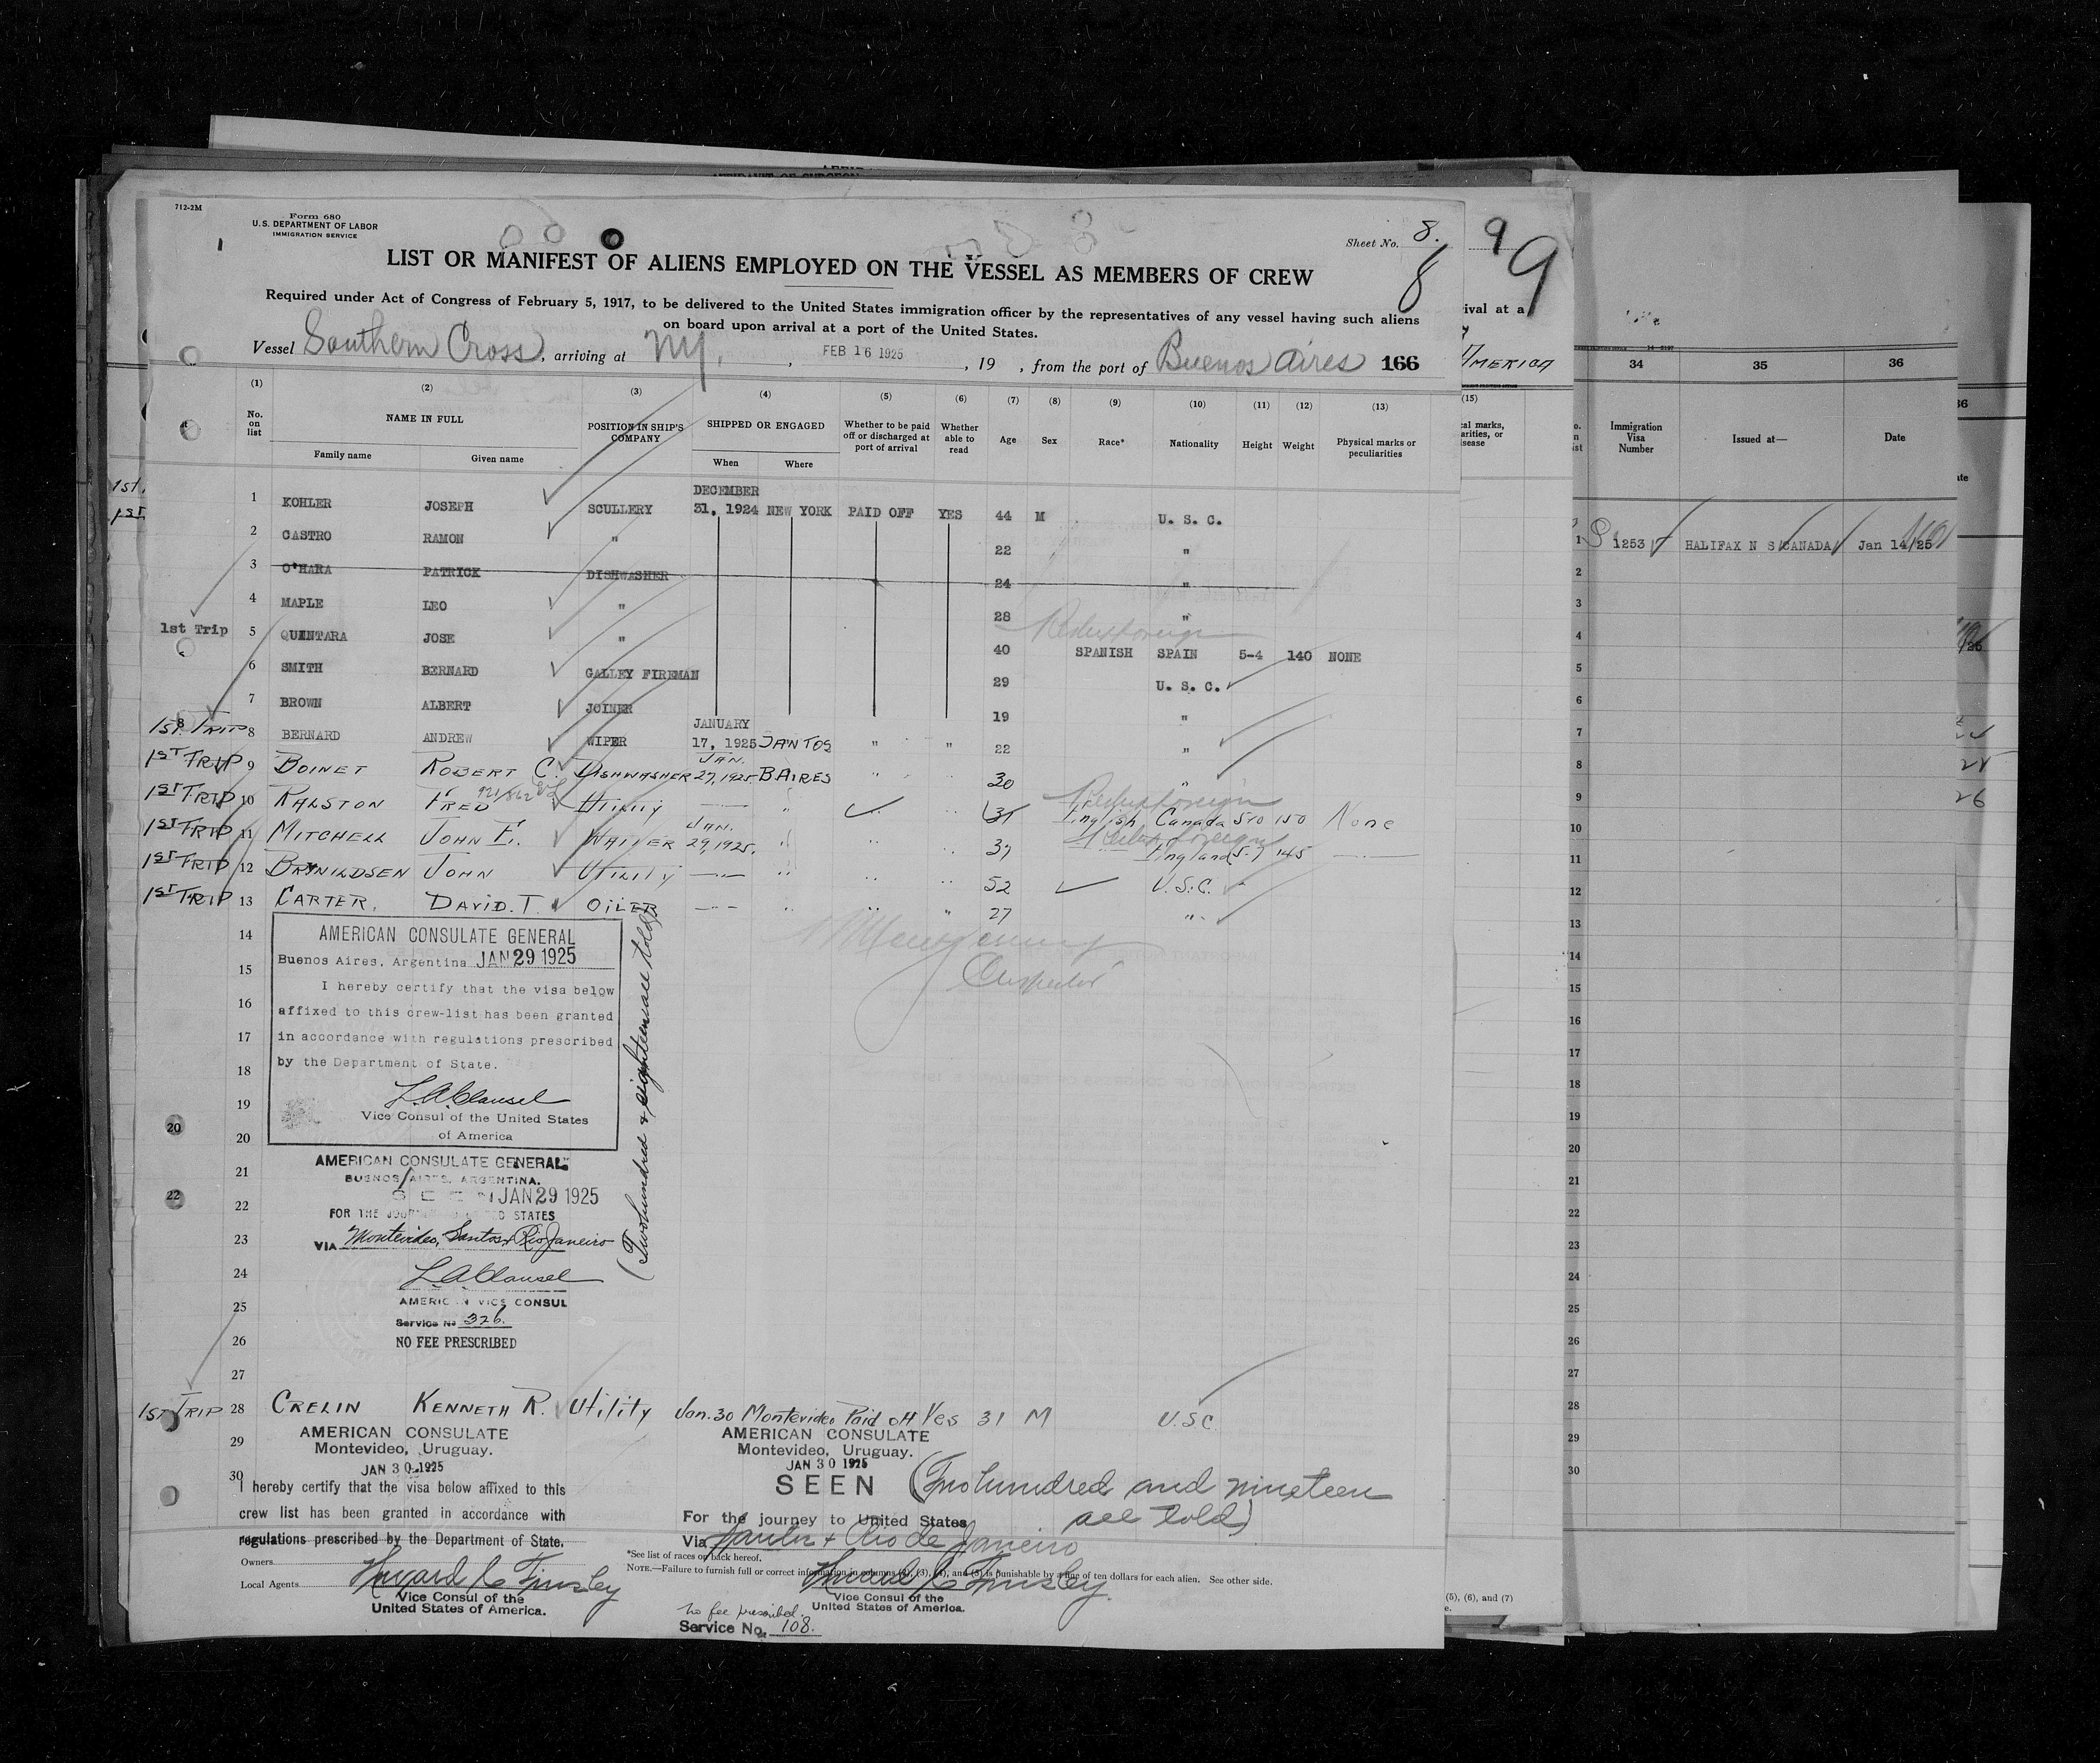 712-2M
Form 680
U.S. DEPARTMENT OF LABOR
IMMIGRATION SERVICE
Sheet No. 8.
8
9 9
LIST OR MANIFEST OF ALIENS EMPLOYED ON THE VESSEL AS MEMBERS OF CREW
Required under Act of Congress of February 5, 1917, to be delivered to the United States immigration officer by the representatives of any vessel having such aliens
on board upon arrival at a port of the United States.
Vessel Southern Cross, arriving at NY, FEB 16 1925, 19 , from the port of Buenos Aires 166
(1) (2) (3) (4) (5) (6) (7) (8) (9) (10) (11) (12) (13)
No. on list NAME IN FULL POSITION IN SHIP'S COMPANY SHIPPED OR ENGAGED Whether to be paid off or discharged at port of arrival Whether able to read Age Sex Race* Nationality Height Weight Physical marks or peculiarities
Family name Given name When Where
1 KOHLER JOSEPH SCULLERY DECEMBER 31, 1924 NEW YORK PAID OFF YES 44 M U. S. C.
2 CASTRO RAMON " 22 "
3 O'HARA PATRICK DISHWASHER 24 "
4 MAPLE LEO " 28 "
1st Trip 5 QUINTARA JOSE " 40 SPANISH SPAIN 5-4 140 NONE
6 SMITH BERNARD GALLEY FIREMAN 29 U. S. C.
7 BROWN ALBERT JOINER 19 "
1st TRIP 8 BERNARD ANDREW WIPER JANUARY 17, 1925 SANTOS " " 22 "
1ST TRIP 9 BOINET ROBERT C. DISHWASHER JAN. 27, 1925 B AIRES " " 30 "
1ST TRIP 10 RALSTON FRED 921/862 Utility " " 35 English Canada 5 10 150 None
1ST TRIP 11 MITCHELL JOHN E. WAITER JAN. 29, 1925. " " " 37 England 5-7 145
1ST TRIP 12 BRYNILDSEN JOHN UTILITY " " " 52 U.S.C.
1ST TRIP 13 CARTER, DAVID. T. OILER " " " 27 "
14
15
16
17
18
19
20
21
22
23
24
25
26
27
AMERICAN CONSULATE GENERAL
Buenos Aires, Argentina JAN 29 1925
I hereby certify that the visa below
affixed to this crew-list has been granted
in accordance with regulations prescribed
by the Department of State.
L.A. Clausel
Vice Consul of the United States
of America
(Two hundred & eighteen all told)
Inspector
AMERICAN CONSULATE GENERAL
BUENOS AIRES, ARGENTINA.
SEEN JAN 29 1925
FOR THE JOURNEY TO UNITED STATES
VIA Montevideo, Santos, Rio Janeiro
L.A. Clausel
AMERICAN VICE CONSUL
Service No 326.
NO FEE PRESCRIBED
1ST TRIP 28 CRELIN KENNETH R. Utility Jan. 30 Montevideo Paid off Yes 31 M U.S.C.
29
30
AMERICAN CONSULATE
Montevideo, Uruguay.
JAN 30 1925
I hereby certify that the visa below affixed to this
crew list has been granted in accordance with
regulations prescribed by the Department of State.
Owners
Local Agents
Vice Consul of the
United States of America.
AMERICAN CONSULATE
Montevideo, Uruguay.
JAN 30 1925
SEEN (Two hundred and nineteen
all told)
For the journey to United States
Via Santos + Rio de Janeiro
*See list of races on back hereof.
NOTE.—Failure to furnish full or correct information in columns (2), (3), (4), and (5) is punishable by a fine of ten dollars for each alien. See other side.
Vice Consul of the
United States of America.
no fee prescribed.
Service No. 108.
ival at a
AMERICA
(15)
(5), (6), and (7)
34 35 36
Immigration Visa Number Issued at— Date
1 1253 HALIFAX N S CANADA Jan 14/25
2
3
4
5
6
7
8
9
10
11
12
13
14
15
16
17
18
19
20
21
22
23
24
25
26
27
28
29
30
20
22